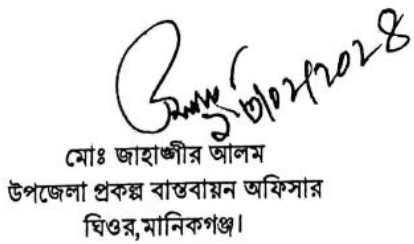 মোঃ জাহাঙ্গীর আলম
উপজেলা প্রকল্প বাস্তবায়ন অফিসার
ঘিওর,মানিকগঞ্জ।